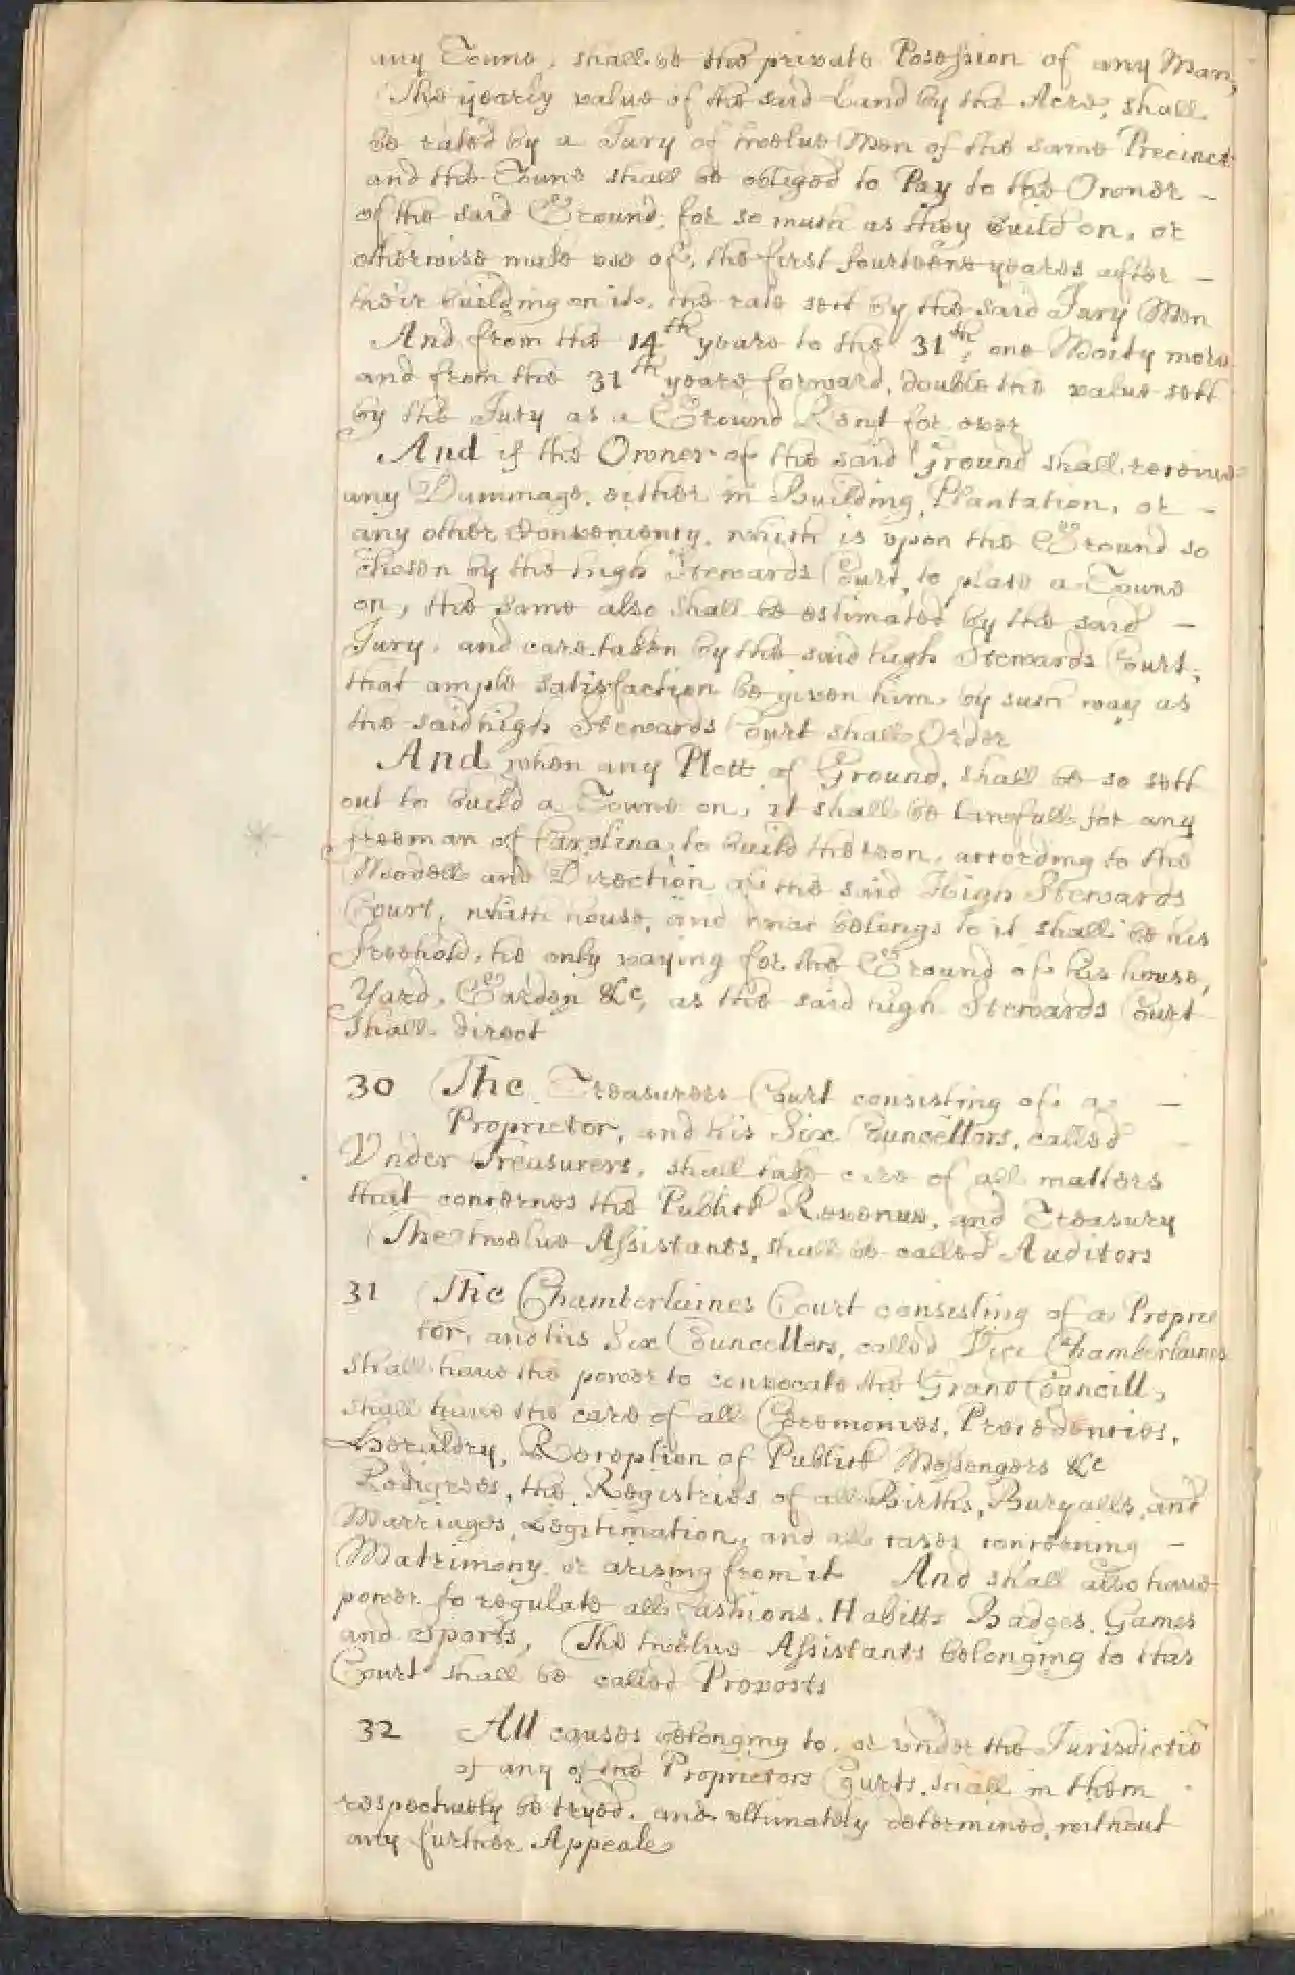 any Towne, shall be the private Posession of any Man,
The yearly value of the said Land by the Acre, shall
be rated by a Jury of twelve Men of the same Precinct
and the Towne shall be obliged to Pay to the Owner –
of the said Ground, for so much as they build on, or
otherwise make use of, the first fourteene yeares after –
their building on it, the rate sett by the said Jury Men
And from the 14th yeare to the 31th, one Moity more
and from the 31th yeare forward, double the value sett
by the Jury as a Ground Rent for ever
And if the Owner of the said Ground shall receive
any Dammage, either in Building, Plantation, or –
any other Conveniency, which is upon the Ground so
Chosen by the high Stewards Court, to place a Towne
on, the same also shall be estimated by the said –
Jury, and care taken by the said high Stewards Court,
that ample satisfaction be given him, by such way as
the said high Stewards Court shall Order
And when any Plott of Ground, shall be so sett
out to build a Towne on, it shall be lawfull for any
freeman of Carolina to build thereon, according to the
Moodell and Direction of the said High Stewards
Court, which house, and what belongs to it shall be his
freehold, he only paying for the Ground of his house,
Yard, Garden &c, as the said high Stewards Court
Shall direct
30 The Treasurers Court consisting of a –
Proprietor, and his Six Councellors, called –
Vnder Treasurers, shall take care of all matters
that concernes the Publick Revenue, and Treasury
The twelve Assistants, shall be called Auditors
31 The Chamberlaines Court consisting of a Proprie
tor, and his Six Councellors, called Vice Chamberlaines
Shall have the power to convocate the Grand Councill,
shall have the care of all Ceremonies, Precedencies,
Heraldry, Reception of Publick Messengers &c
Pedigrees, the Registries of all Births, Buryalls, and
Marriages, Legitimation, and all cases concerning –
Matrimony or arising from it And shall also have
power to regulate all Fashions, Habitts Badges, Games
and Sports, The twelve Assistants belonging to this
Court shall be called Provosts
32 All causes belonging to, or vnder the Jurisdictiō
of any of the Proprietors Courts, shall in them
respectively be tryed, and vltimately determined, without
any further Appeale